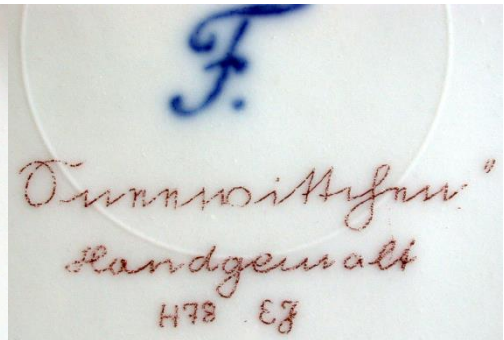 F.
Sneewittchen"
Handgemalt
H78 EJ